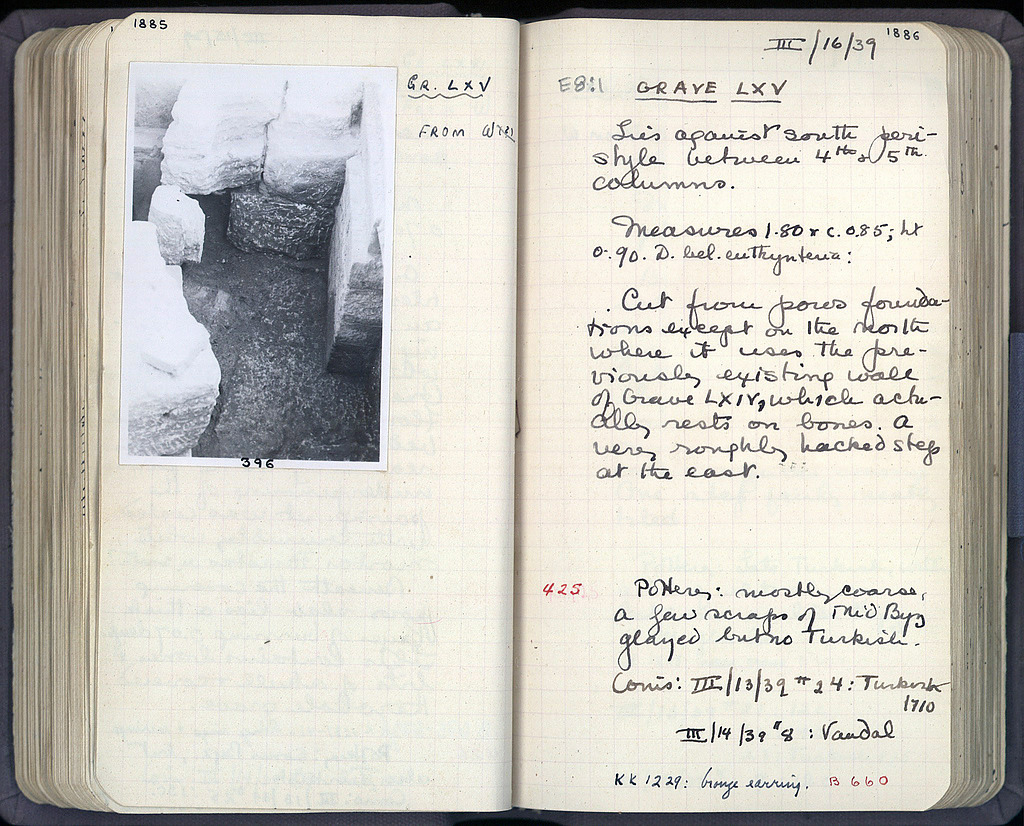 1885
GR. LXV
FROM W
396
1886
III/16/39
E8:1 GRAVE LXV
Lies against south peri-
style between 4th & 5th
columns.
Measures 1.80 x c. 0.85; ht
0.90. D. bel. euthynteria:
Cut from poros founda-
tions except on the north
where it uses the pre-
viously existing wall
of Grave LXIV, which actu-
ally rests on bones. A
very roughly hacked step
at the east.
425 Pottery: mostly coarse,
a few scraps of Mid Byz
glazed but no Turkish.
Coins: III/13/39 #24: Turkish
1710
III/14/39 #8: Vandal
KK 1229: bronze earring. B 660